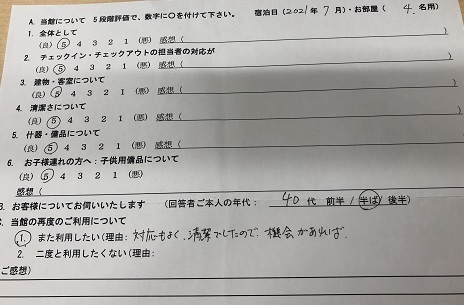 A. 当館について 5段階評価で、数字に○を付けて下さい。 宿泊日(2021年 7月)・お部屋( 4. 名用)
1. 全体として
(良) 5 4 3 2 1 (悪) 感想( )
2. チェックイン・チェックアウトの担当者の対応が
(良) 5 4 3 2 1 (悪) 感想( )
3. 建物・客室について
(良) 5 4 3 2 1 (悪) 感想( )
4. 清潔さについて
(良) 5 4 3 2 1 (悪) 感想( )
5. 什器・備品について
(良) 5 4 3 2 1 (悪) 感想( )
6. お子様連れの方へ:子供用備品について
(良) 5 4 3 2 1 (悪)
感想( )
B. お客様についてお伺いいたします (回答者ご本人の年代: 40代 前半 / 半ば 後半)
C. 当館の再度のご利用について
1. また利用したい(理由: 対応もよく、清潔でしたので、機会があれば、
2. 二度と利用したくない(理由:
ご感想)